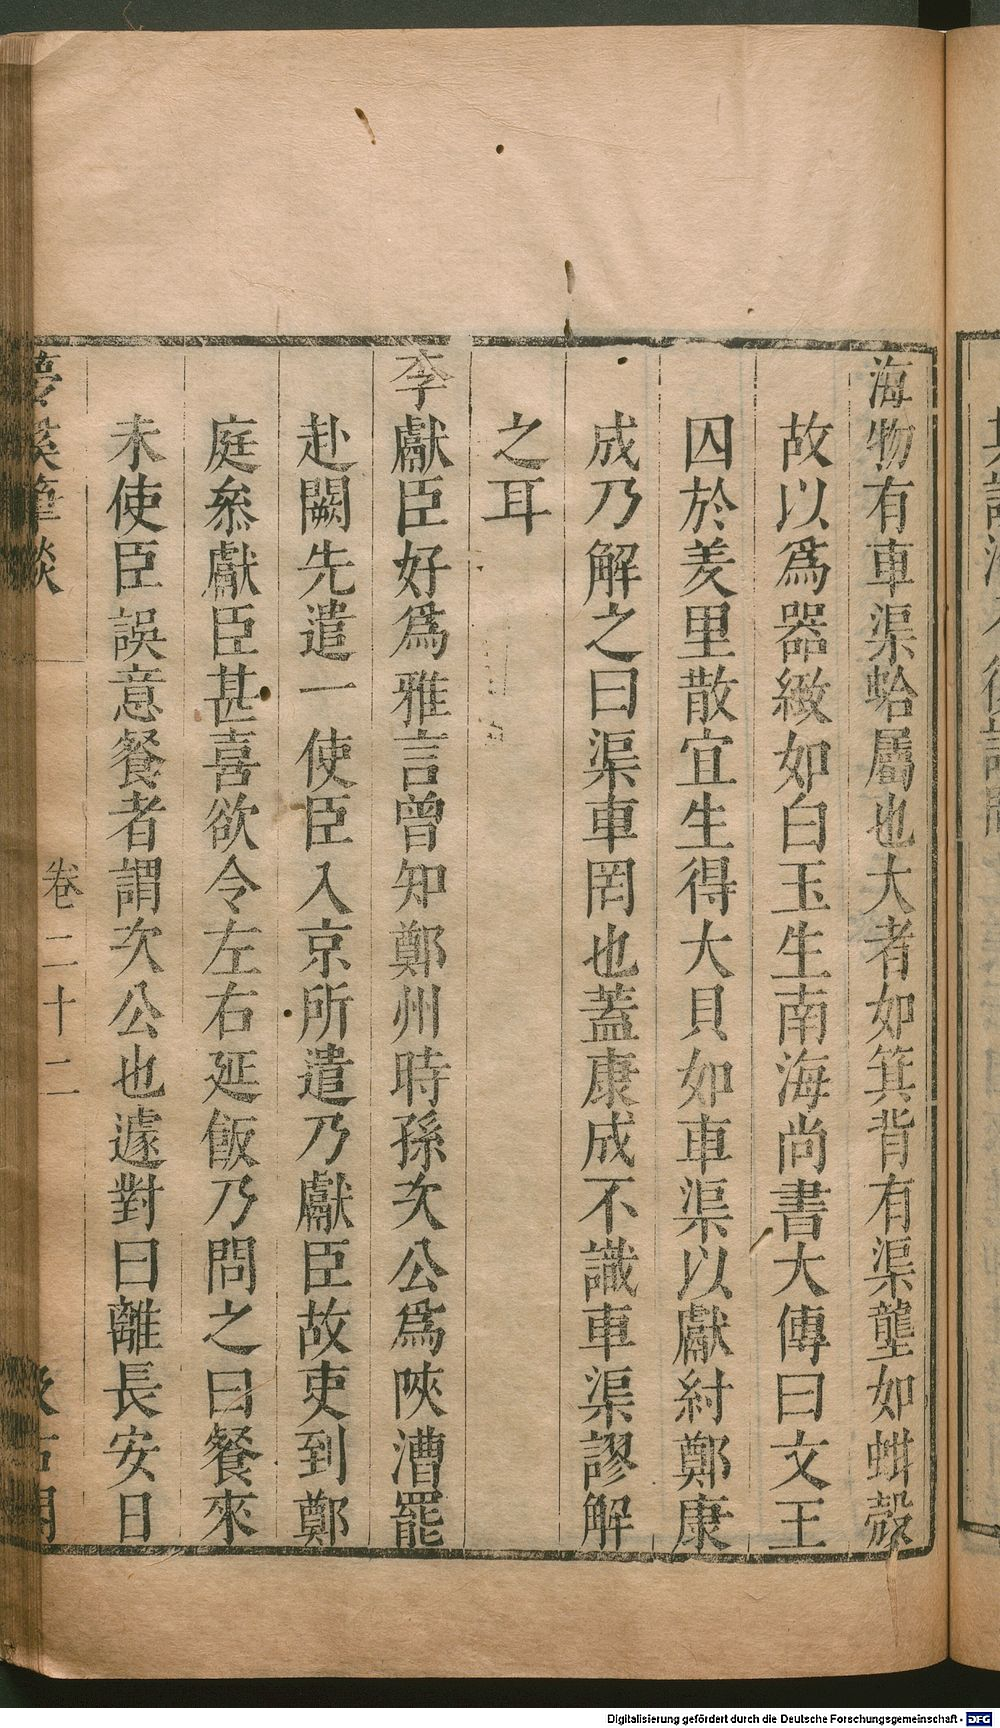 海物有車渠蛤屬也大者如箕背有渠壟如蚶殼
故以爲器緻如白玉生南海尚書大傳曰文王
囚於羑里散宜生得大貝如車渠以獻紂鄭康
成乃解之曰渠車罔也蓋康成不識車渠謬解
之耳
李獻臣好爲雅言曾知鄭州時孫次公爲陝漕罷
赴闕先遣一使臣入京所遣乃獻臣故吏到鄭
庭叅獻臣甚喜欲令左右延飯乃問之曰餐來
未使臣誤意餐者謂次公也遽對曰離長安日
夢溪筆談
卷二十二
Digitalisierung gefördert durch die Deutsche Forschungsgemeinschaft - DFG